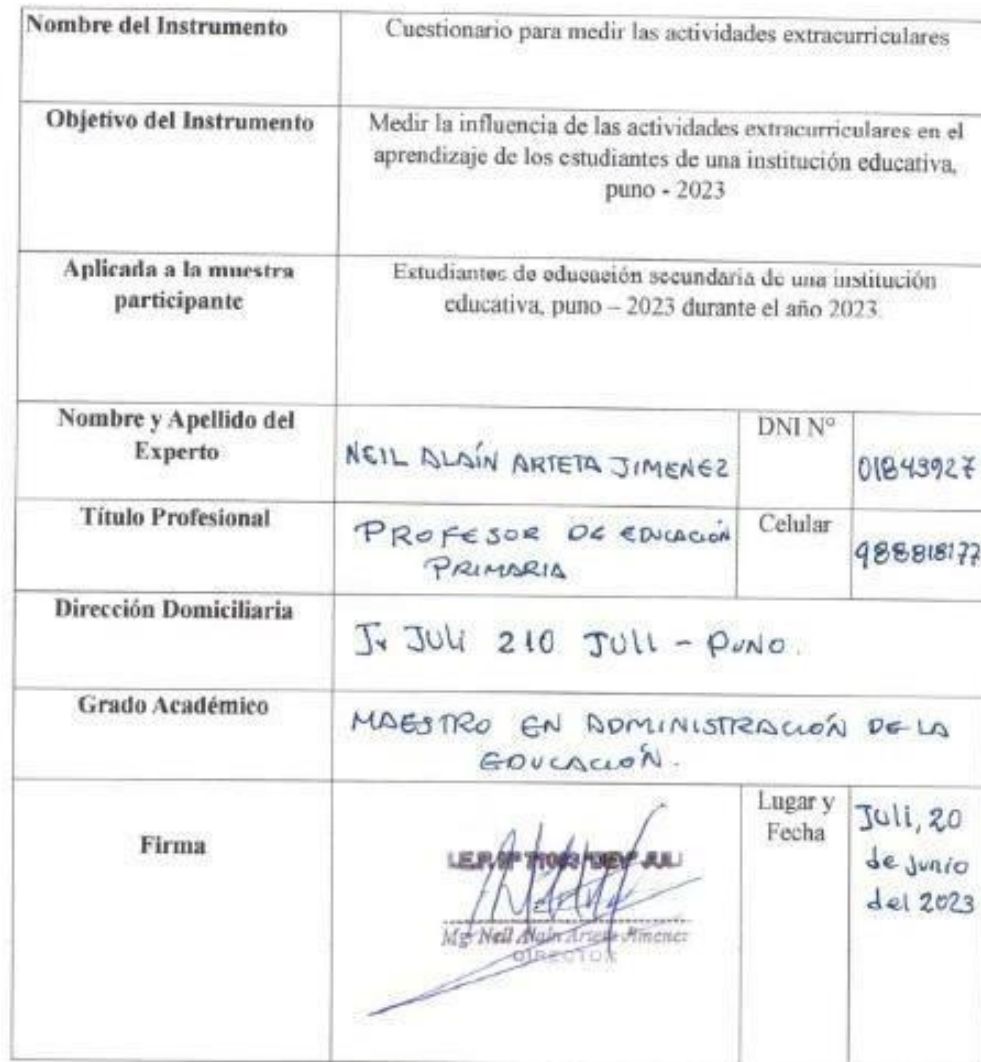 Nombre del Instrumento
Cuestionario para medir las actividades extracurriculares
Objetivo del Instrumento
Medir la influencia de las actividades extracurriculares en el
aprendizaje de los estudiantes de una institución educativa,
puno - 2023
Aplicada a la muestra
participante
Estudiantes de educación secundaria de una institución
educativa, puno – 2023 durante el año 2023.
Nombre y Apellido del
Experto
NEIL ALAÍN ARTETA JIMENEZ
DNI N°
01843927
Título Profesional
PROFESOR DE EDUCACIÓN
PRIMARIA
Celular
988818177
Dirección Domiciliaria
Jr JULI 210 JULI - PUNO.
Grado Académico
MAESTRO EN ADMINISTRACIÓN DE LA
EDUCACIÓN.
Firma
I.E.P. N° JULI
Mg. Neil Alain Arteta Jimenez
DIRECTOR
Lugar y
Fecha
Juli, 20
de junio
del 2023